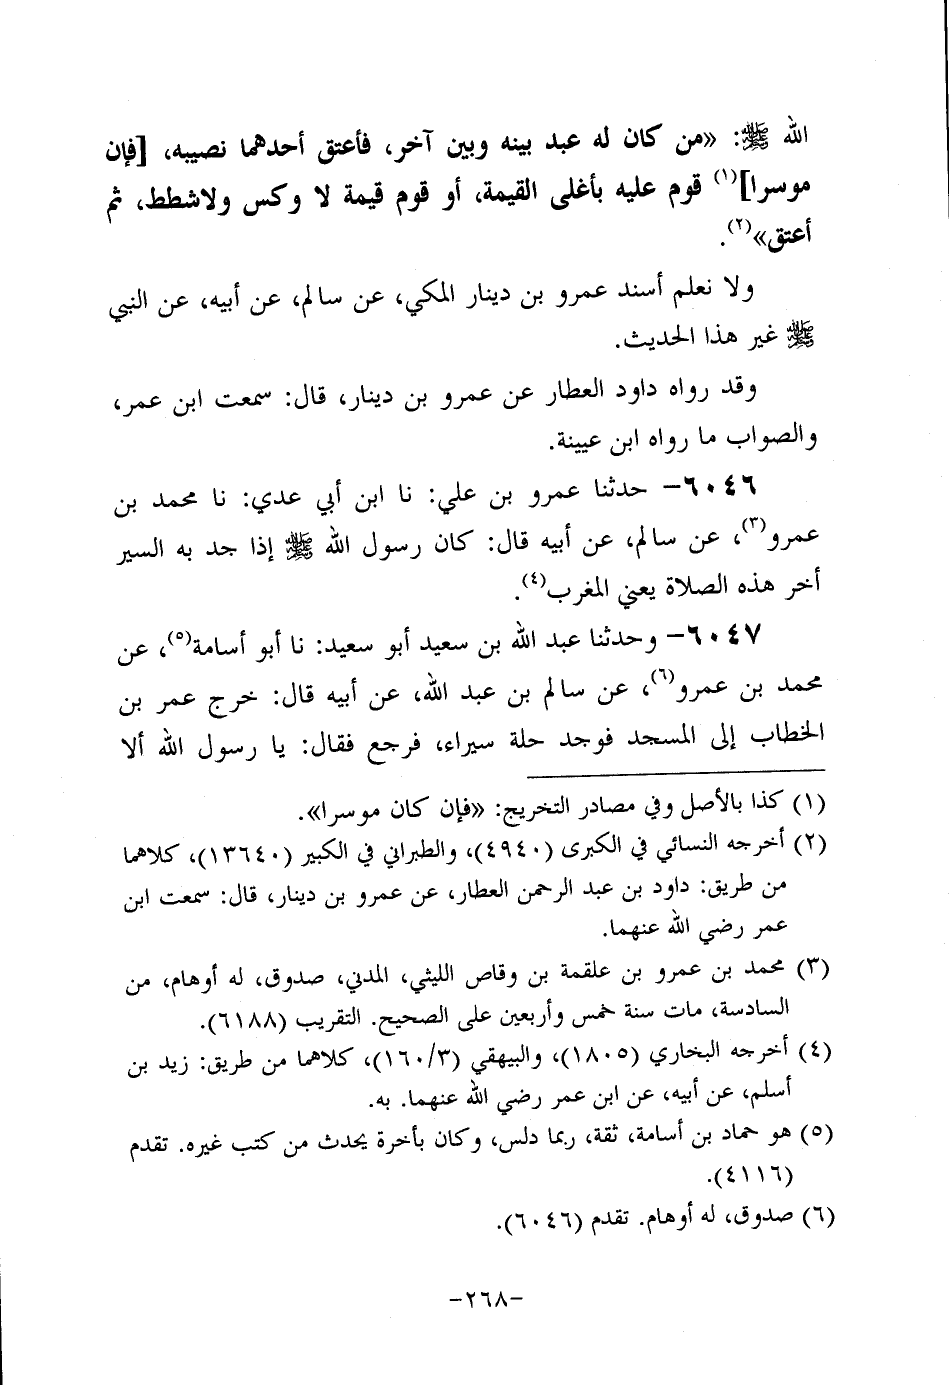 الله ﷺ: «من كان له عبد بينه وبين آخر، فأعتق أحدهما نصيبه، [فإن
موسرا](١) قوم عليه بأغلى القيمة، أو قوم قيمة لا وكس ولاشطط، ثم
أعتق»(٢).
ولا نعلم أسند عمرو بن دينار المكي، عن سالم، عن أبيه، عن النبي
ﷺ غير هذا الحديث.
وقد رواه داود العطار عن عمرو بن دينار، قال: سمعت ابن عمر،
والصواب ما رواه ابن عيينة.
٦٠٤٦- حدثنا عمرو بن علي: نا ابن أبي عدي: نا محمد بن
عمرو(٣)، عن سالم، عن أبيه قال: كان رسول الله ﷺ إذا جد به السير
أخر هذه الصلاة يعني المغرب(٤).
٦٠٤٧- وحدثنا عبد الله بن سعيد أبو سعيد: نا أبو أسامة(٥)، عن
محمد بن عمرو(٦)، عن سالم بن عبد الله، عن أبيه قال: خرج عمر بن
الخطاب إلى المسجد فوجد حلة سيراء، فرجع فقال: يا رسول الله ألا
(١) كذا بالأصل وفي مصادر التخريج: «فإن كان موسرا».
(٢) أخرجه النسائي في الكبرى (٤٩٤٠)، والطبراني في الكبير (١٣٦٤٠)، كلاهما
من طريق: داود بن عبد الرحمن العطار، عن عمرو بن دينار، قال: سمعت ابن
عمر رضي الله عنهما.
(٣) محمد بن عمرو بن علقمة بن وقاص الليثي، المدني، صدوق، له أوهام، من
السادسة، مات سنة خمس وأربعين على الصحيح. التقريب (٦١٨٨).
(٤) أخرجه البخاري (١٨٠٥)، والبيهقي (١٦٠/٣)، كلاهما من طريق: زيد بن
أسلم، عن أبيه، عن ابن عمر رضي الله عنهما. به.
(٥) هو حماد بن أسامة، ثقة، ربما دلس، وكان بأخرة يحدث من كتب غيره. تقدم
(٤١١٦).
(٦) صدوق، له أوهام. تقدم (٦٠٤٦).
-٢٦٨-